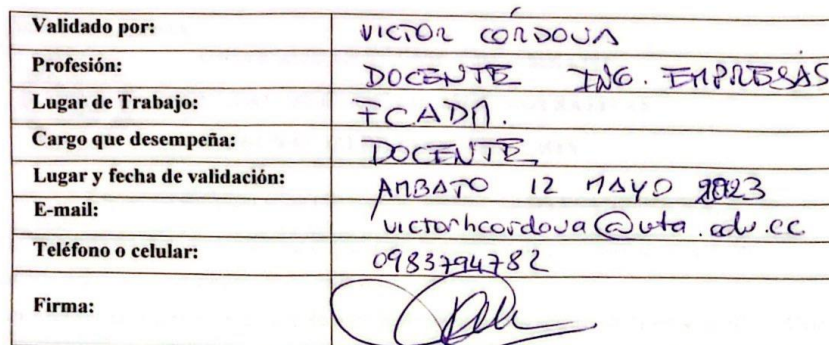 Validado por: VICTOR CÓRDOVA
Profesión: DOCENTE ING. EMPRESAS
Lugar de Trabajo: FCADM.
Cargo que desempeña: DOCENTE
Lugar y fecha de validación: AMBATO 12 MAYO 2023
E-mail: victorhcordova@uta.edu.ec
Teléfono o celular: 0983794782
Firma: